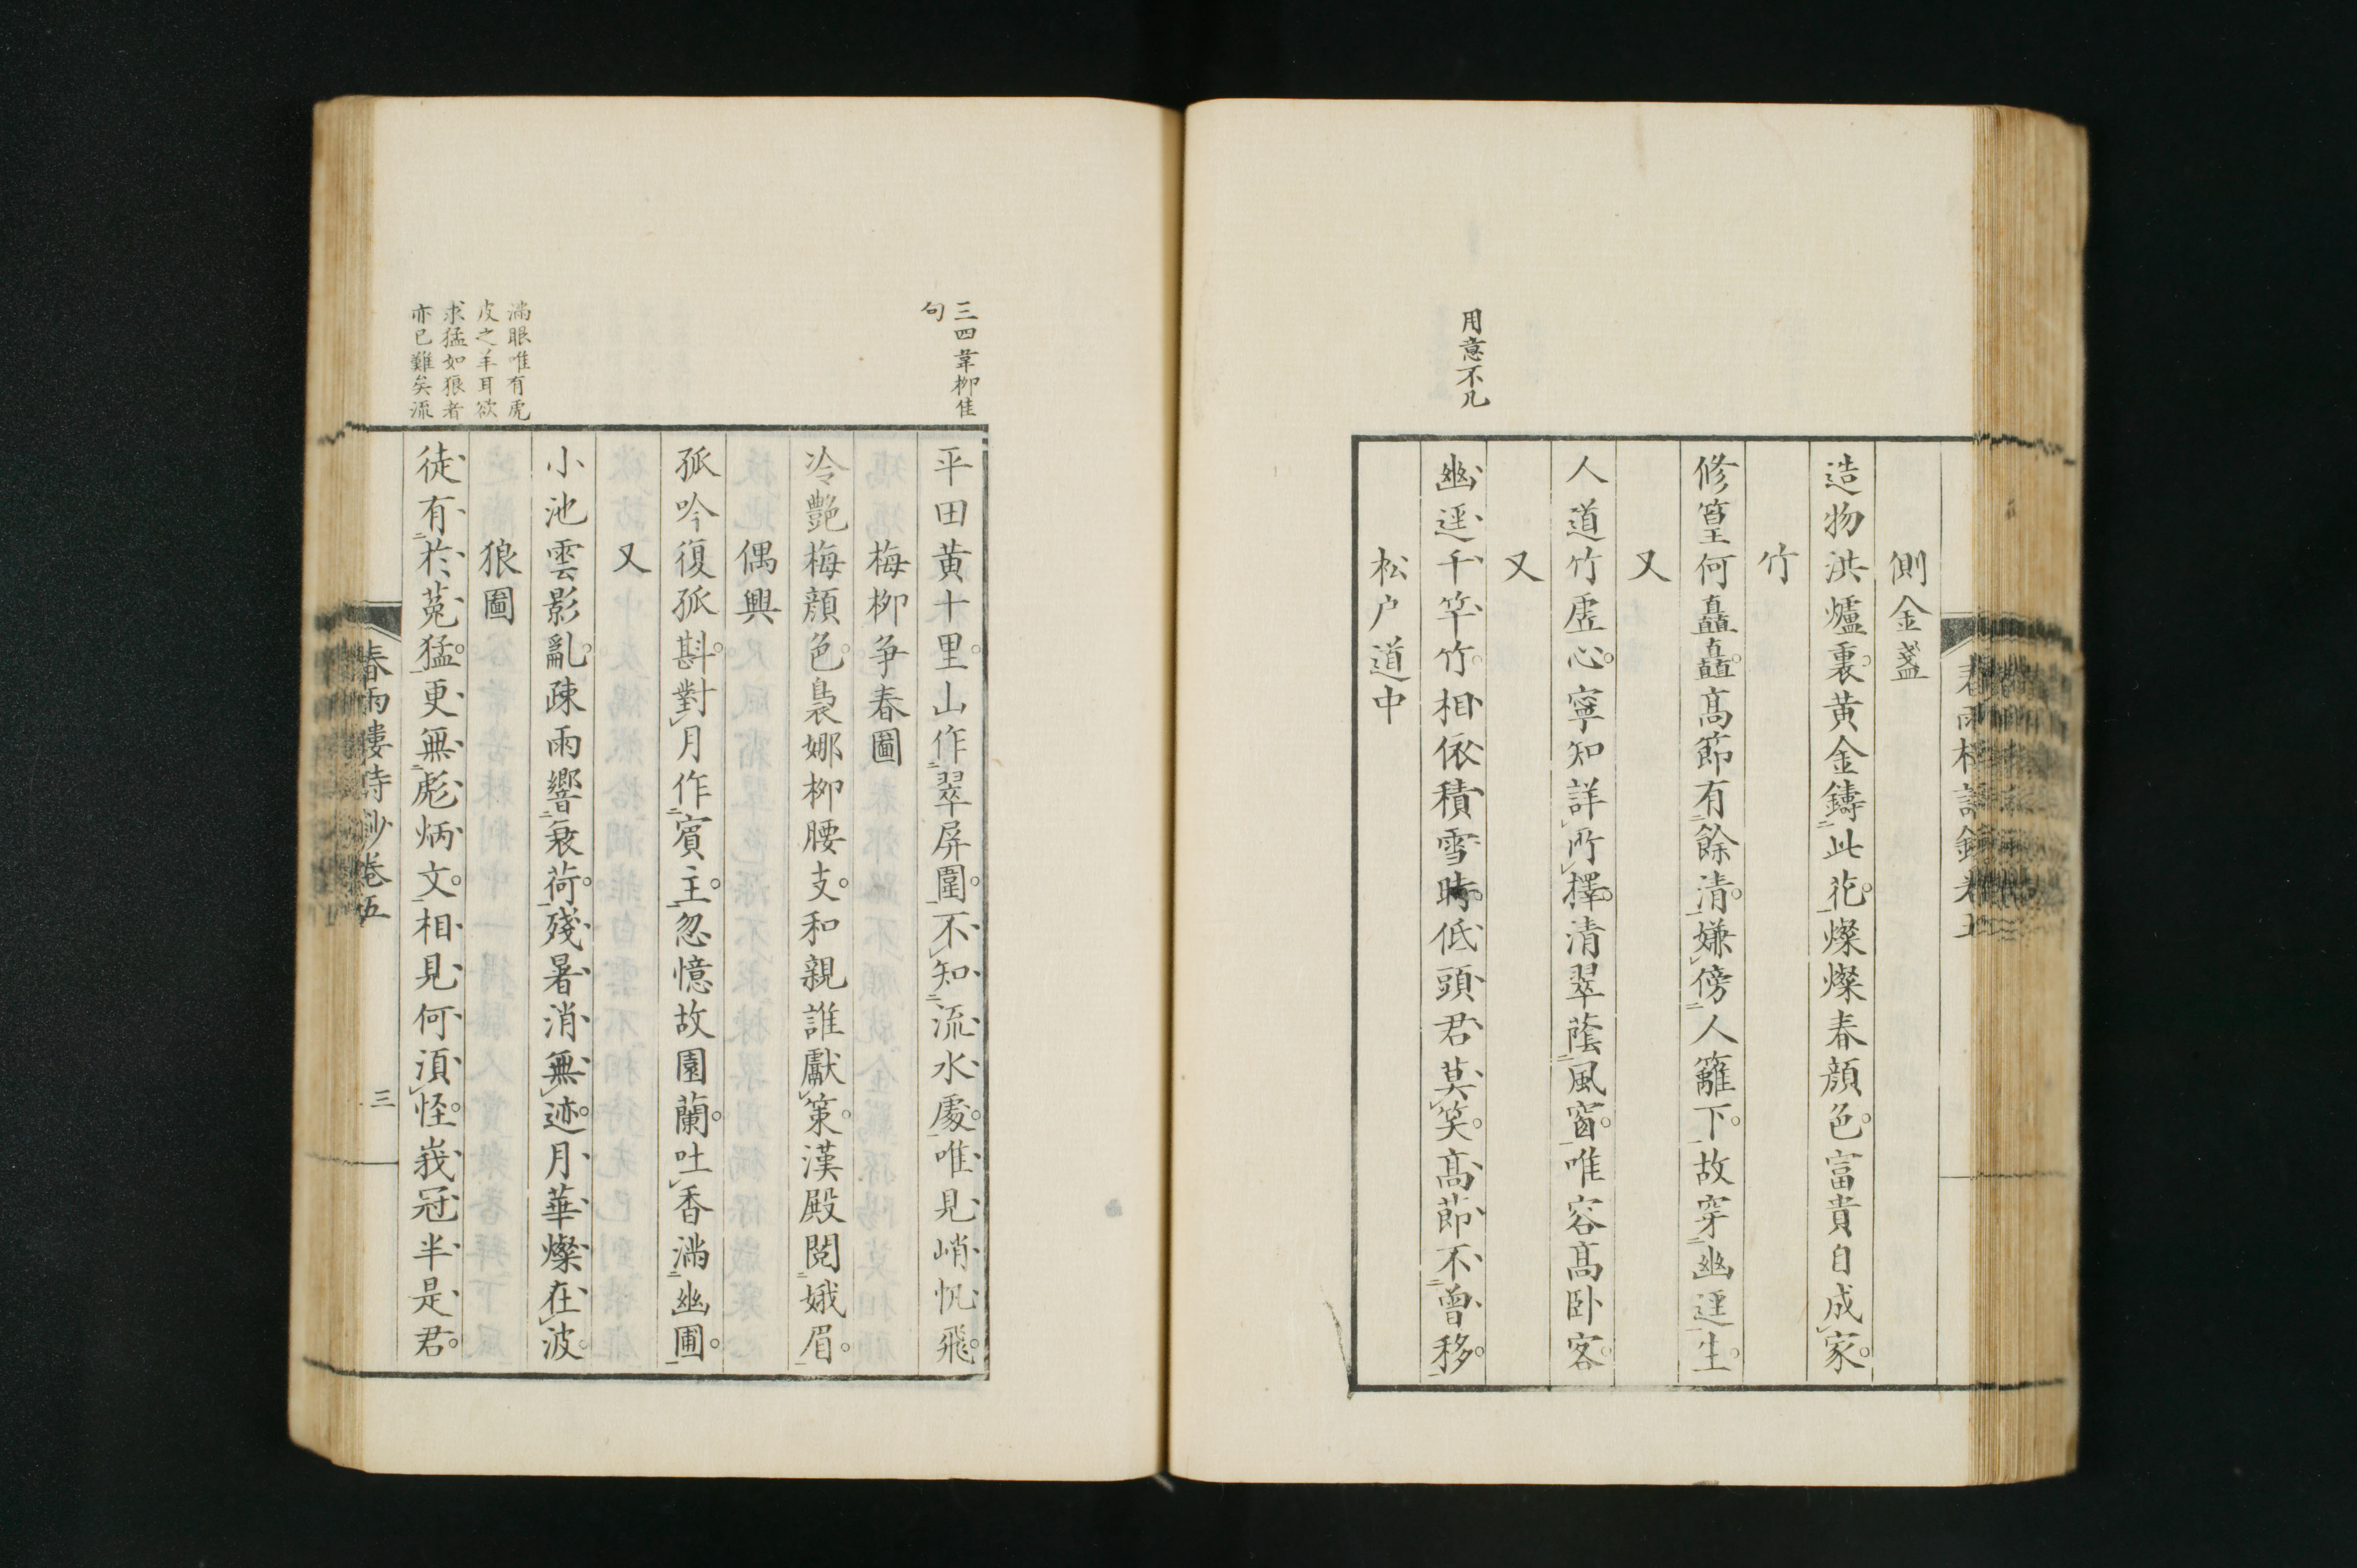 用意不凡
側金盞
造物洪爐裏黄金鑄此花燦燦春顔色富貴自成家
竹
修篁何矗矗高節有餘清嫌傍人籬下故穿幽逕生
又
人道竹虚心寧知詳所擇清翠蔭風窗唯容高卧客
又
幽逕千竿竹相依積雪時低頭君莫笑高節不曾移
松户道中
三四韋柳佳
句
平田黄十里山作翠屏圍不知流水處唯見峭帆飛
梅柳争春圖
冷艶梅顔色裊娜柳腰支和親誰獻策漢殿閲娥眉
偶興
孤吟復孤斟對月作賓主忽憶故園蘭吐香滿幽圃
又
小池雲影亂疎雨響衰荷殘暑消無迹月華燦在波
狼圖
滿眼唯有虎
皮之羊耳欲
求猛如狼者
亦已難矣流
徒有於菟猛更無彪炳文相見何須怪峩冠半是君
春雨樓詩鈔卷五
三